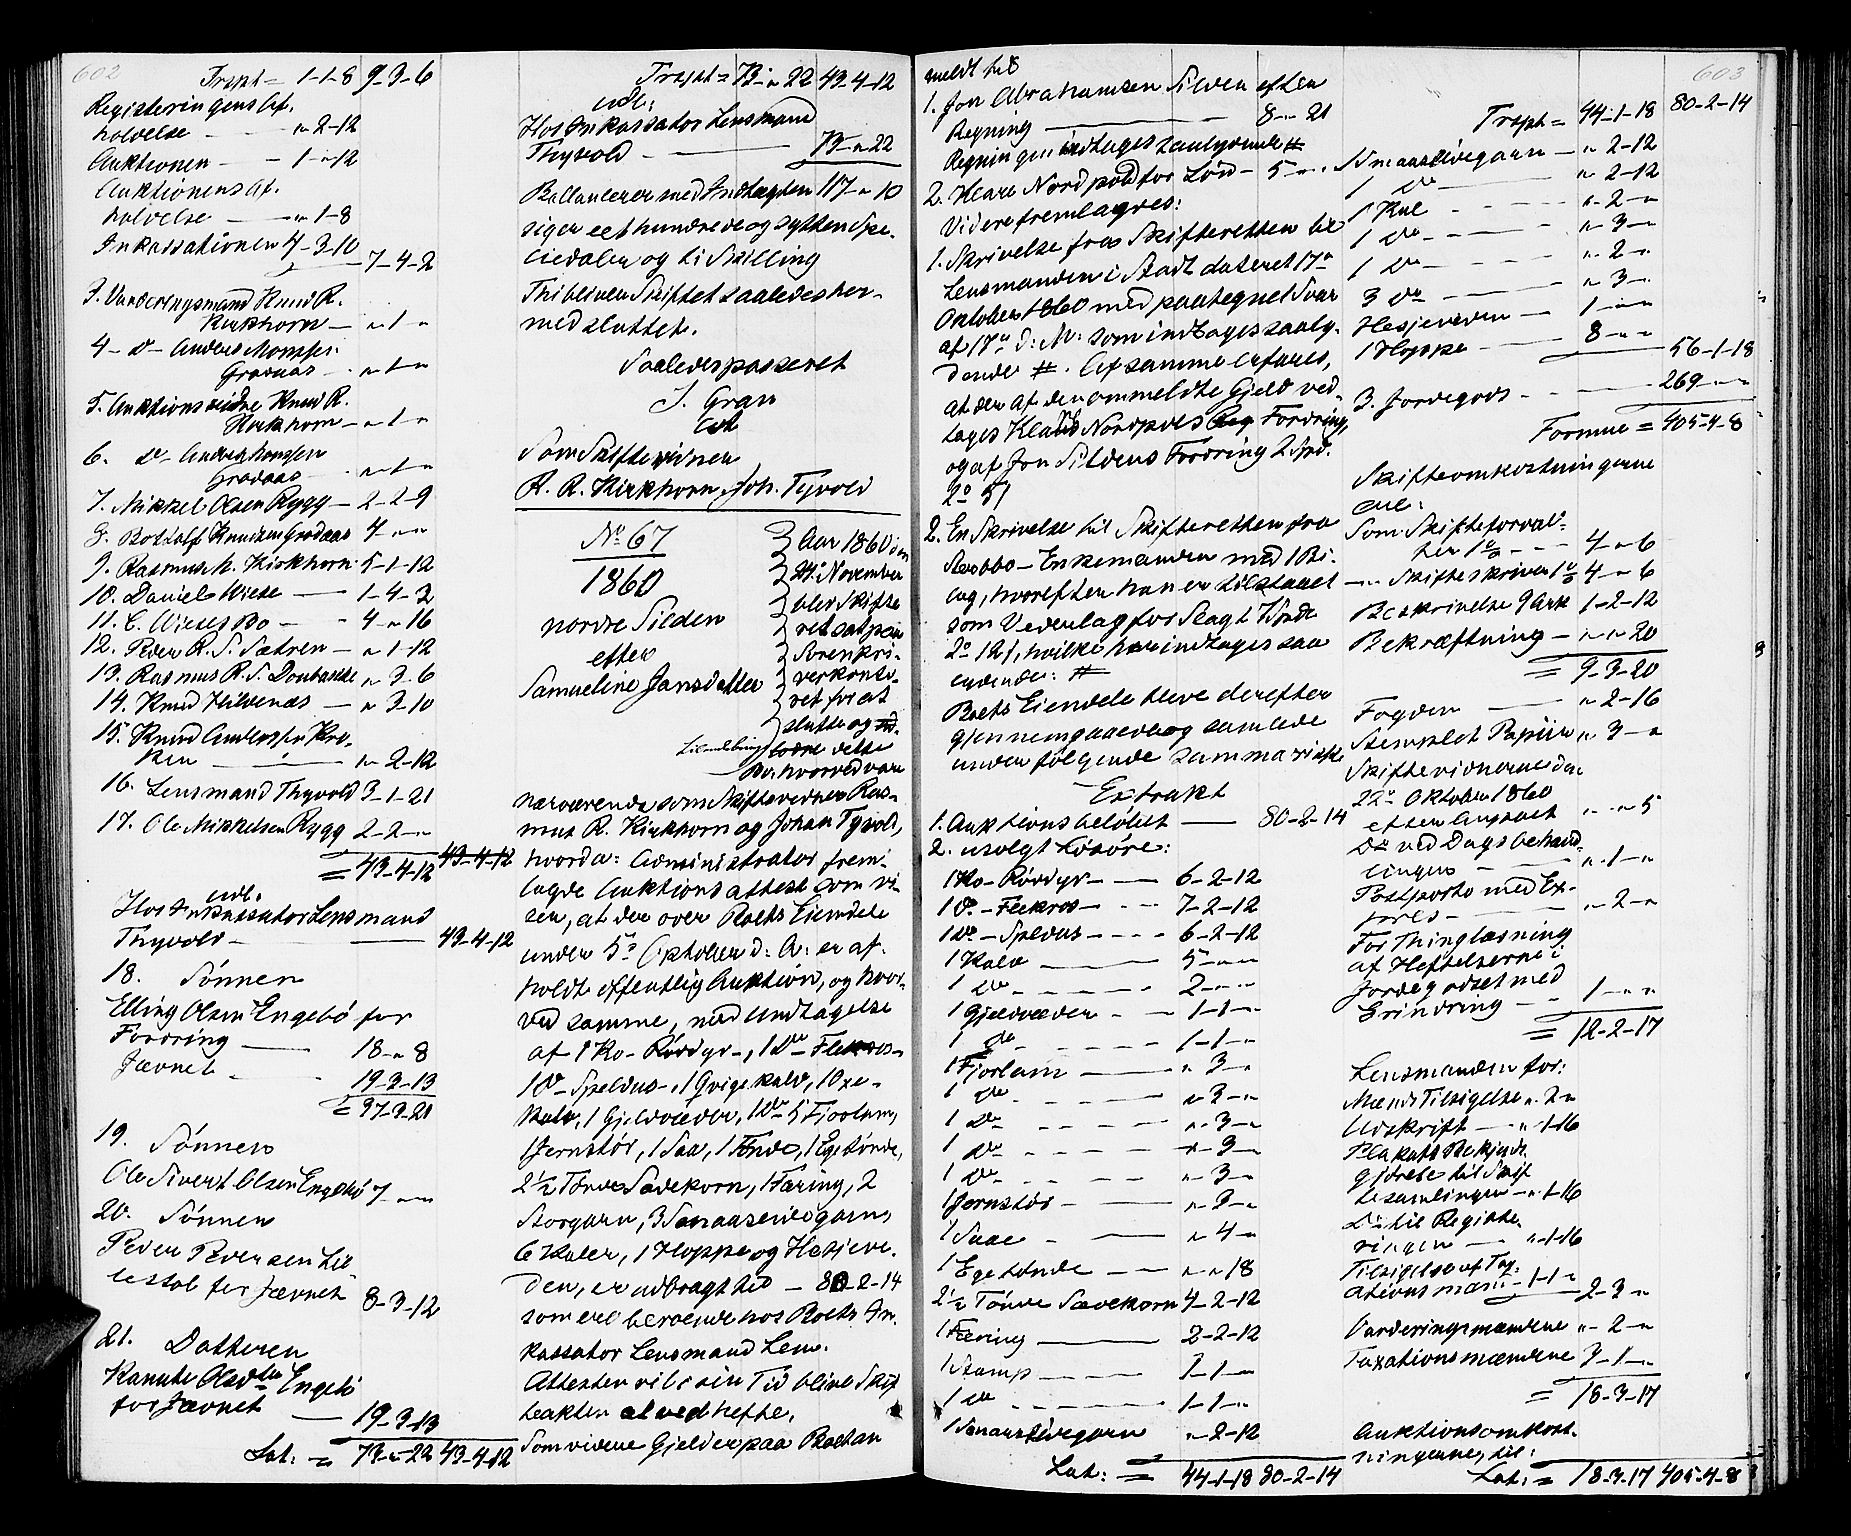 602
Trspt = 1-1-8 9-3-6
Registeringens Af-
holdelse - " 2-12
Auktionen - 1-"-12
Auktionens Af-
holdelse - " 1-8
Inkassationen 4-3-10 7-4-2
3. Vurderingsmand Knud R.
Kirkhorn - " 1 "
4 - D - Anders Monssen
Gradaas - " 1 "
5. Auktionsvidne Knud R.
Kirkhorn - " 1 "
6. D - Anders Monssen
Gradaas - " 1 "
7. Mikkel Olsen Rygg - 2-2-9
8. Botholf Knudsen Gradaas 4 - " "
9. Rasmus A. Kirkhorn 5-1-12
10. Daniel Wiese - 1-4-2
11. C. Wieses Bo - 4-"16
12. Peder R. S. Sætren - " 1-12
13. Rasmus R. S. " 3-6
14. Knud Hildenæs - " 3-10
15. Knud Anderssen Kro-
ken - " 2-12
16. Lensmand Thyvold 3-1-21
17. Ole Mikkelsen Rygg 2-2-"
= 43-4-12 43-4-12
udl.
Hos Inkassator Lensmand
Thyvold - 43-4-12
18. Sønnen
Elling Olsen Engebø for
Fordring - 18-"8
Jævnet - 19-3-13
= 37-3-21
19. Sønnen
Ole Sivert Olsen Engebø 7 - " "
20. Sønnen
Peder Pedersen Lil
lestøl for Jævnet 8-3-12
21. Datteren
Kanute Olsdtr Engebø
for Jævnet - 19-3-13
Lat: = 73-"-22 43-4-12
Trspt = 73-"22 43-4-12
udl:
Hos Inkassator Lensmand
Thyvold - 73-"22
Ballancerer med Indtægten 117-"10
siger eet hundrede og sytten Spe-
ciedaler og ti Skilling
Thi bliver Skiftet saaledes her-
med sluttet.
Saaledes passeret
J. Gran
Som Skiftevidner
R. R. Kirkhorn, Joh. Tyvold
No 67
1860
nordre Silden
efter
Samueline Jansdatter
Aar 1860 den
November
blev Skifte
ret sat paa
Sorenskri-
verkonto-
ret for at
slutte og
hvorved vare
nærværende som Skiftevidner Ras-
mus R. Kirkhorn og Johan Tyvold,
hvorda: Administrator frem-
lagde Auktionsattest som vi-
ser, at der over Boets Eiendele
under 5te Oktober d: A: er af-
holdt offentlig Auktion, og hvor-
ved samme, med Undtagelse
af 1 Ko - Røddyr -, 1 Do - Flekros -
1 Do - Speldus -, 1 Qvigekalv, 1 Oxe-
kalv, 1 Gjeldvæder, 1 Do 5 Fjorlam,
1 Jernstør, 1 Saa, 1 Tønde, 1 Egetønde,
2½ Tønde Sædekorn, 1 Færing, 2
Storgarn, 3 Smaaseiegarn,
6 Kuler, 1 Hoppe og Hesjeve-
den, er udbragt til - 80-2-14
som er beroende hos Boets In-
kassator Lensmand Lem.
Attesten vil i sin Tid blive Skif
teakten at vedhefte.
Som videre Gjelder paa Boet an
meldt til
1. Jon Abrahamsen Silden efter
Regning - 8-"21
Regningen indtages saalydende #
2. Klare Nordpold for Løn - 5 - " "
Videre fremlagdes:
1. Skrivelse fra Skifteretten til
Lensmanden i Stadt dateret 17de
Oktober 1860 med paategnet Svar
af 17de d: M: som indtages saaly-
dende #. Af samme erfares,
at der af den anmeldte Gjeld ved-
tages Klares Nordpolds Fordring,
og af Jon Sildens Fordring 2 Spd.
2. En Skrivelse til Skifteretten fra
Stærbo-Enkemanden med 1 Bi-
lag, hvorefter han er tilstaaet
som Vederlag for Slagt Høst
hvilke her indtages saa
lydende: #
Boets Eiendele bleve derefter
gjennemgaaede og samlede
under følgende summariske
Extrakt
1. Auktionsbeløbet - 80-2-14
2. usolgt Løsøre:
1 Ko - Røddyr - 6-2-12
1 Do - Flekros - 7-2-12
1 Do - Speldus - 6-2-12
1 Kalv - 5 - " "
1 Do - 2 - " "
1 Gjeldvæder - 1-1-"
1 Do - 1-1-"
1 Fjorlam - " 3-"
1 Do - " 3-"
1 Do - " 3-"
1 Do - " 3-"
1 Do - " 3-"
1 Jernstør - " 3-"
1 Saae - " 4-"
1 Egetønde - " "18
2½ Tønde Sædekorn 4-2-12
1 Færing - 2-2-12
1 Stamp - 1-1-"
1 Do - 1-1-"
1 Smaaseiegarn - " 2-12
Lat: = 44-1-18 80-2-14
603
Trspt = 44-1-18 80-2-14
Smaaseiegarn - " 2-12
1 Do - " 2-12
1 Kul - " 2-"
1 Do - " 3-"
1 Do - " 2-"
3 Do - " 3-"
Hesjeveden - 1-"-"
1 Hoppe - 8-"-" 56-1-18
3. Jordegods - 269-"-"
Formue = 405-4-8
Skifteomkostningerne
ere:
Som Skifteforval-
ter 1% - 4-"6
- " Skifteskriver 1% 4-"6
Beskrivelse 9 Ark 1-2-12
Bekræftning - " "20
= 9-3-20
Fogden - " 2-16
Stemplet Papiir " 3-"
Skiftevidnerne den
22de Oktober 1860
efter Anpart " "5
Do ved Dags behand-
lingen - " 1-"
Postporto med Ex-
pres - " 2-"
For Thinglæsning
af Heftelserne i
Jordegodset med
Erindring - 1 - " "
= 12-2-17
Lensmanden for:
Mænds Tilsigelse " 2-"
Udskrift - " 1-16
Plakats Bekjendt-
gjørelse til Skif
tesamlingen - " 1-16
Do til Registe-
ringen - " 1-16
Tilsigelse af Tax-
ationsmænd - 1-1-" 2-3-"
Vurderingsmændene " 2-"
Taxationsmændene 3-1-"
= 18-3-17
Auktionsomkost-
ningerne, til:
Lat: = 18-3-17 405-4-8